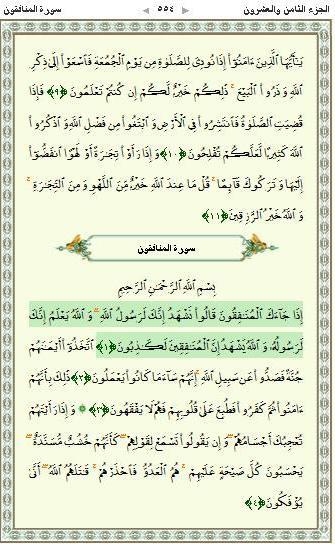 سورة المنافقون ◄ ٥٥٤ ► الجزء الثامن والعشرون
يَٰٓأَيُّهَا ٱلَّذِينَ ءَامَنُوٓا۟ إِذَا نُودِىَ لِلصَّلَوٰةِ مِن يَوْمِ ٱلْجُمُعَةِ فَٱسْعَوْا۟ إِلَىٰ ذِكْرِ
ٱللَّهِ وَذَرُوا۟ ٱلْبَيْعَ ۚ ذَٰلِكُمْ خَيْرٌ لَّكُمْ إِن كُنتُمْ تَعْلَمُونَ ﴿٩﴾ فَإِذَا
قُضِيَتِ ٱلصَّلَوٰةُ فَٱنتَشِرُوا۟ فِى ٱلْأَرْضِ وَٱبْتَغُوا۟ مِن فَضْلِ ٱللَّهِ وَٱذْكُرُوا۟
ٱللَّهَ كَثِيرًا لَّعَلَّكُمْ تُفْلِحُونَ ﴿١٠﴾ وَإِذَا رَأَوْا۟ تِجَٰرَةً أَوْ لَهْوًا ٱنفَضُّوٓا۟
إِلَيْهَا وَتَرَكُوكَ قَآئِمًا ۚ قُلْ مَا عِندَ ٱللَّهِ خَيْرٌ مِّنَ ٱللَّهْوِ وَمِنَ ٱلتِّجَٰرَةِ ۚ
وَٱللَّهُ خَيْرُ ٱلرَّٰزِقِينَ ﴿١١﴾
سورة المنافقون
بِسْمِ ٱللَّهِ ٱلرَّحْمَٰنِ ٱلرَّحِيمِ
إِذَا جَآءَكَ ٱلْمُنَٰفِقُونَ قَالُوا۟ نَشْهَدُ إِنَّكَ لَرَسُولُ ٱللَّهِ ۗ وَٱللَّهُ يَعْلَمُ إِنَّكَ
لَرَسُولُهُۥ وَٱللَّهُ يَشْهَدُ إِنَّ ٱلْمُنَٰفِقِينَ لَكَٰذِبُونَ ﴿١﴾ ٱتَّخَذُوٓا۟ أَيْمَٰنَهُمْ
جُنَّةً فَصَدُّوا۟ عَن سَبِيلِ ٱللَّهِ ۚ إِنَّهُمْ سَآءَ مَا كَانُوا۟ يَعْمَلُونَ ﴿٢﴾ ذَٰلِكَ بِأَنَّهُمْ
ءَامَنُوا۟ ثُمَّ كَفَرُوا۟ فَطُبِعَ عَلَىٰ قُلُوبِهِمْ فَهُمْ لَا يَفْقَهُونَ ﴿٣﴾ ۞ وَإِذَا رَأَيْتَهُمْ
تُعْجِبُكَ أَجْسَامُهُمْ ۖ وَإِن يَقُولُوا۟ تَسْمَعْ لِقَوْلِهِمْ ۖ كَأَنَّهُمْ خُشُبٌ مُّسَنَّدَةٌ ۖ
يَحْسَبُونَ كُلَّ صَيْحَةٍ عَلَيْهِمْ ۚ هُمُ ٱلْعَدُوُّ فَٱحْذَرْهُمْ ۚ قَٰتَلَهُمُ ٱللَّهُ ۖ أَنَّىٰ
يُؤْفَكُونَ ﴿٤﴾